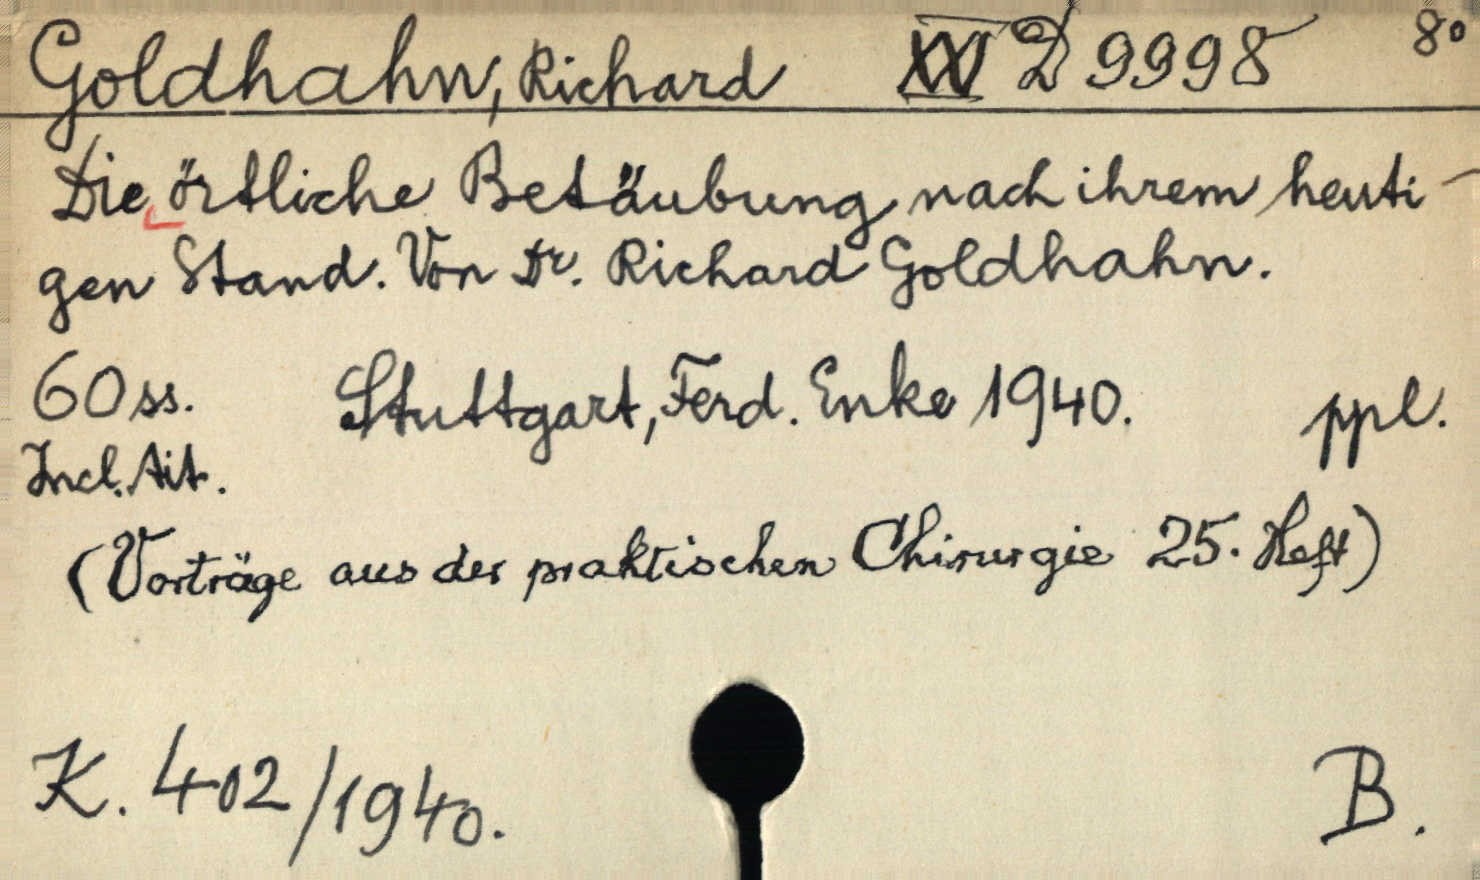 Goldhahn, Richard XV D 9998 8°
Die örtliche Betäubung nach ihrem heuti-
gen Stand. Von Dr. Richard Goldhahn.
60 ss. Stuttgart, Ferd. Enke 1940. ppl.
Incl. tit.
(Vorträge aus der praktischen Chirurgie 25. Heft)
K. 402/1940. B.